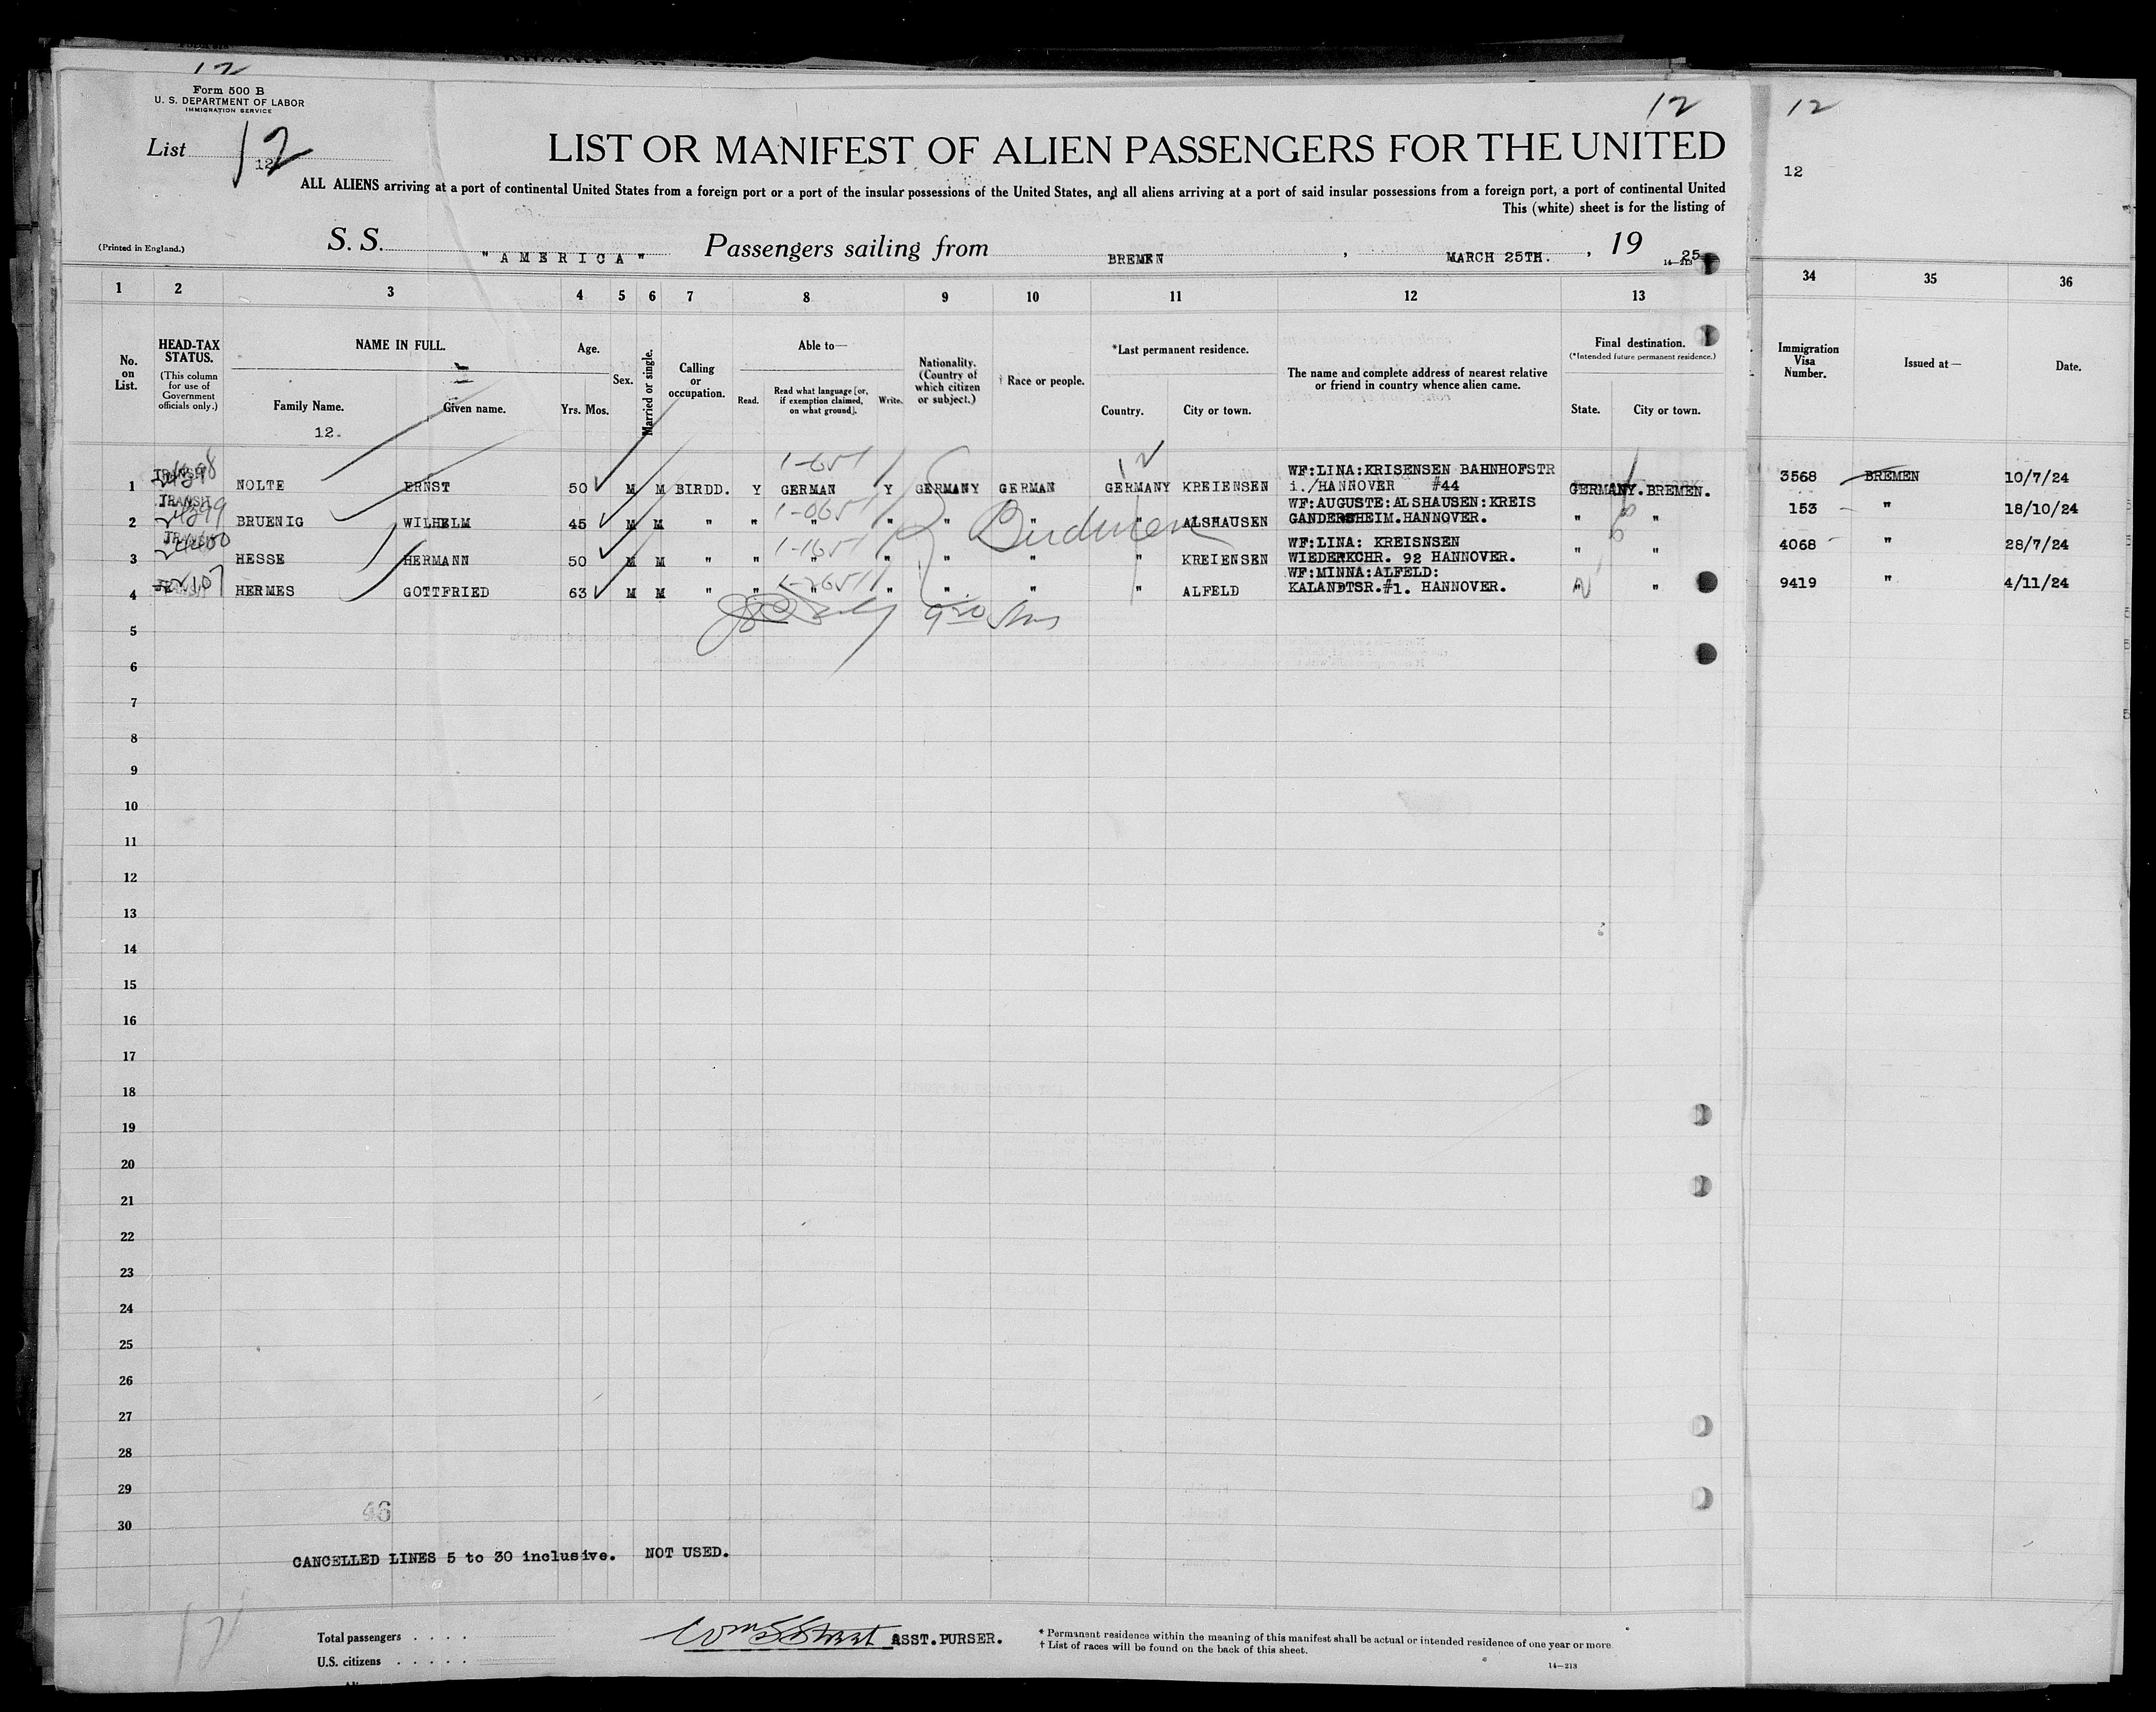 12
Form 500 B
U. S. DEPARTMENT OF LABOR
IMMIGRATION SERVICE
12
12
List 12
12
LIST OR MANIFEST OF ALIEN PASSENGERS FOR THE UNITED
12
ALL ALIENS arriving at a port of continental United States from a foreign port or a port of the insular possessions of the United States, and all aliens arriving at a port of said insular possessions from a foreign port, a port of continental United
This (white) sheet is for the listing of
(Printed in England.)
S. S. "AMERICA" Passengers sailing from BREMEN, MARCH 25TH., 19 25
14—213
1 2 3 4 5 6 7 8 9 10 11 12 13 34 35 36
No. on List.
HEAD-TAX STATUS.
(This column for use of Government officials only.)
NAME IN FULL.
Family Name. Given name.
12.
Age.
Yrs. Mos.
Sex.
Married or single.
Calling or occupation.
Able to—
Read. Read what language [or, if exemption claimed, on what ground]. Write.
Nationality. (Country of which citizen or subject.)
† Race or people.
*Last permanent residence.
Country. City or town.
The name and complete address of nearest relative or friend in country whence alien came.
Final destination.
(*Intended future permanent residence.)
State. City or town.
Immigration Visa Number.
Issued at—
Date.
1 TRANSIT NOLTE ERNST 50 M M BIRDD. Y GERMAN Y GERMANY GERMAN GERMANY KREIENSEN WF:LINA:KRISENSEN BAHNHOFSTR
i./HANNOVER #44 GERMANY. BREMEN. 3568 BREMEN 10/7/24
2 TRANSIT BRUENIG WILHELM 45 M M " " " " " " " ALSHAUSEN WF:AUGUSTE:ALSHAUSEN:KREIS
GANDERSHEIM.HANNOVER. " " 153 " 18/10/24
Birdmen
3 TRANSIT HESSE HERMANN 50 M M " " " " " " " KREIENSEN WF:LINA: KREISNSEN
WIEDERKCHR. 92 HANNOVER. " " 4068 " 28/7/24
4 HERMES GOTTFRIED 63 M M " " " " " " " ALFELD WF:MINNA:ALFELD:
KALANDTSR.#1. HANNOVER. " " 9419 " 4/11/24
5
6
7
8
9
10
11
12
13
14
15
16
17
18
19
20
21
22
23
24
25
26
27
28
29
30
46
CANCELLED LINES 5 to 30 inclusive. NOT USED.
12
Total passengers . . . .
U.S. citizens . . . . .
Wm S Street ASST.PURSER.
* Permanent residence within the meaning of this manifest shall be actual or intended residence of one year or more.
† List of races will be found on the back of this sheet.
14—213